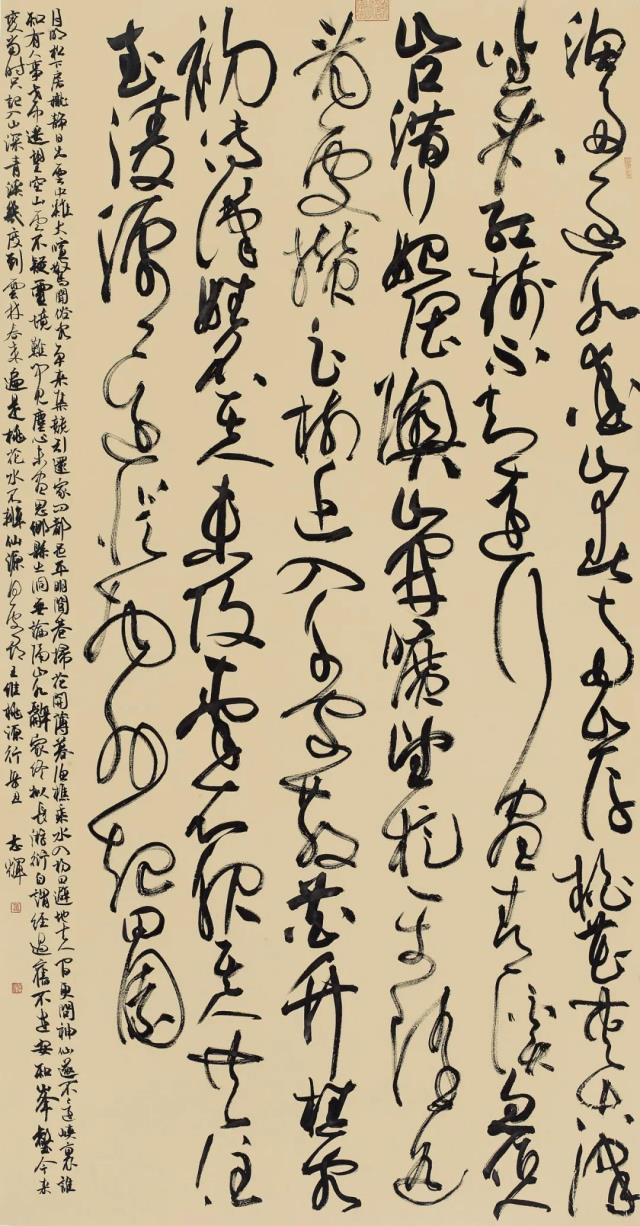 漁舟逐水愛山春兩岸桃花夾古津
坐看紅樹不知遠行盡青溪忽值人
山口潛行始隈隩山開曠望旋平陸遙
看一處攢雲樹近入千家散花竹樵客
初傳漢姓名居人未改秦衣服居人共住
武陵源還從物外起田園
月明松下房櫳靜日出雲中雞犬喧驚聞俗客爭來集競引還家問都邑平明閭巷掃花開薄暮漁樵乘水入初因避地去人間更聞神仙遂不還峽裏誰
知有人事世中遙望空山雲不疑靈境難聞見塵心未盡思鄉縣出洞無論隔山水辭家終擬長游衍自謂經過舊不迷安知峰壑今來
變當時只記入山深青溪幾度到雲林春來遍是桃花水不辨仙源何處尋王維桃源行 志輝